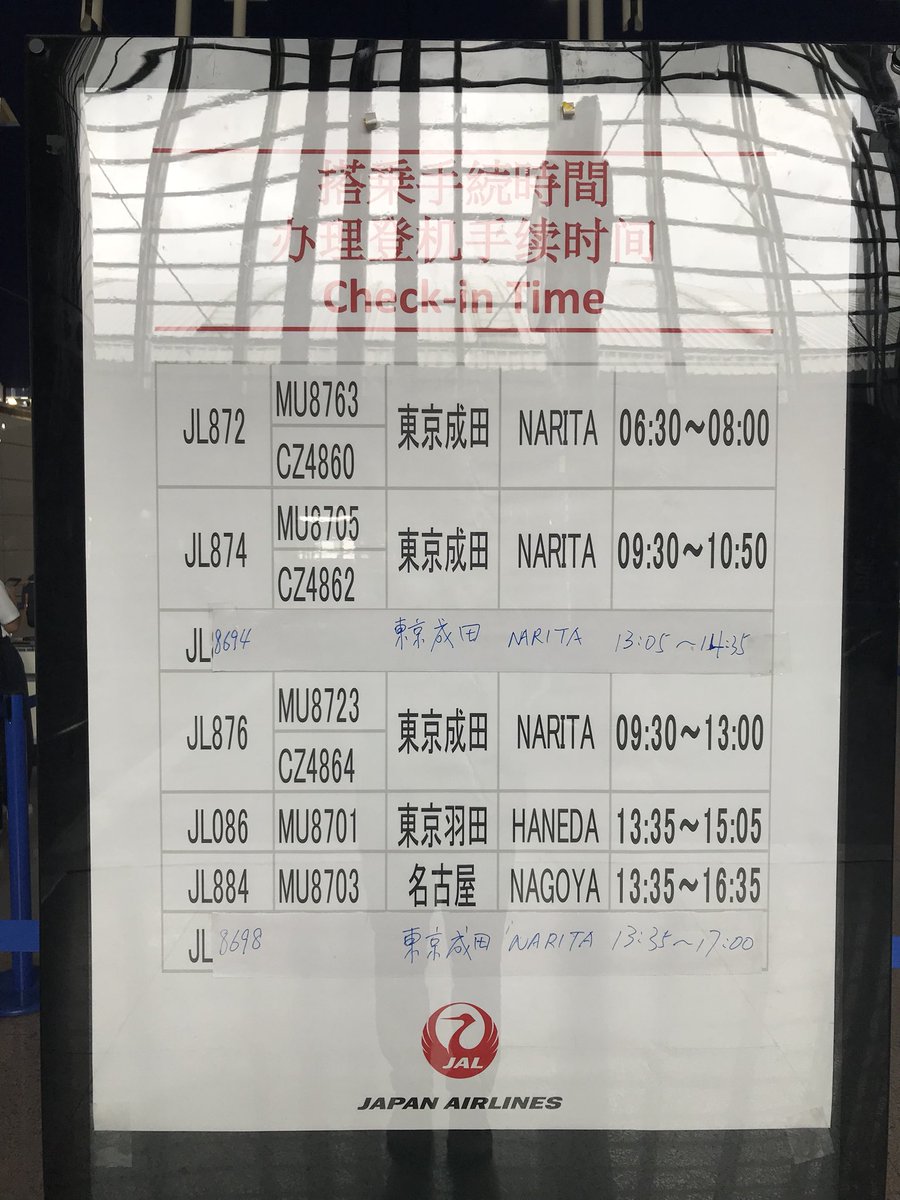 搭乗手続時間
办理登机手续时间
Check-in Time
JL872 MU8763 CZ4860 東京成田 NARITA 06:30~08:00
JL874 MU8705 CZ4862 東京成田 NARITA 09:30~10:50
JL8694 東京成田 NARITA 13:05~14:35
JL876 MU8723 CZ4864 東京成田 NARITA 09:30~13:00
JL086 MU8701 東京羽田 HANEDA 13:35~15:05
JL884 MU8703 名古屋 NAGOYA 13:35~16:35
JL8698 東京成田 NARITA 13:35~17:00
JAL
JAPAN AIRLINES